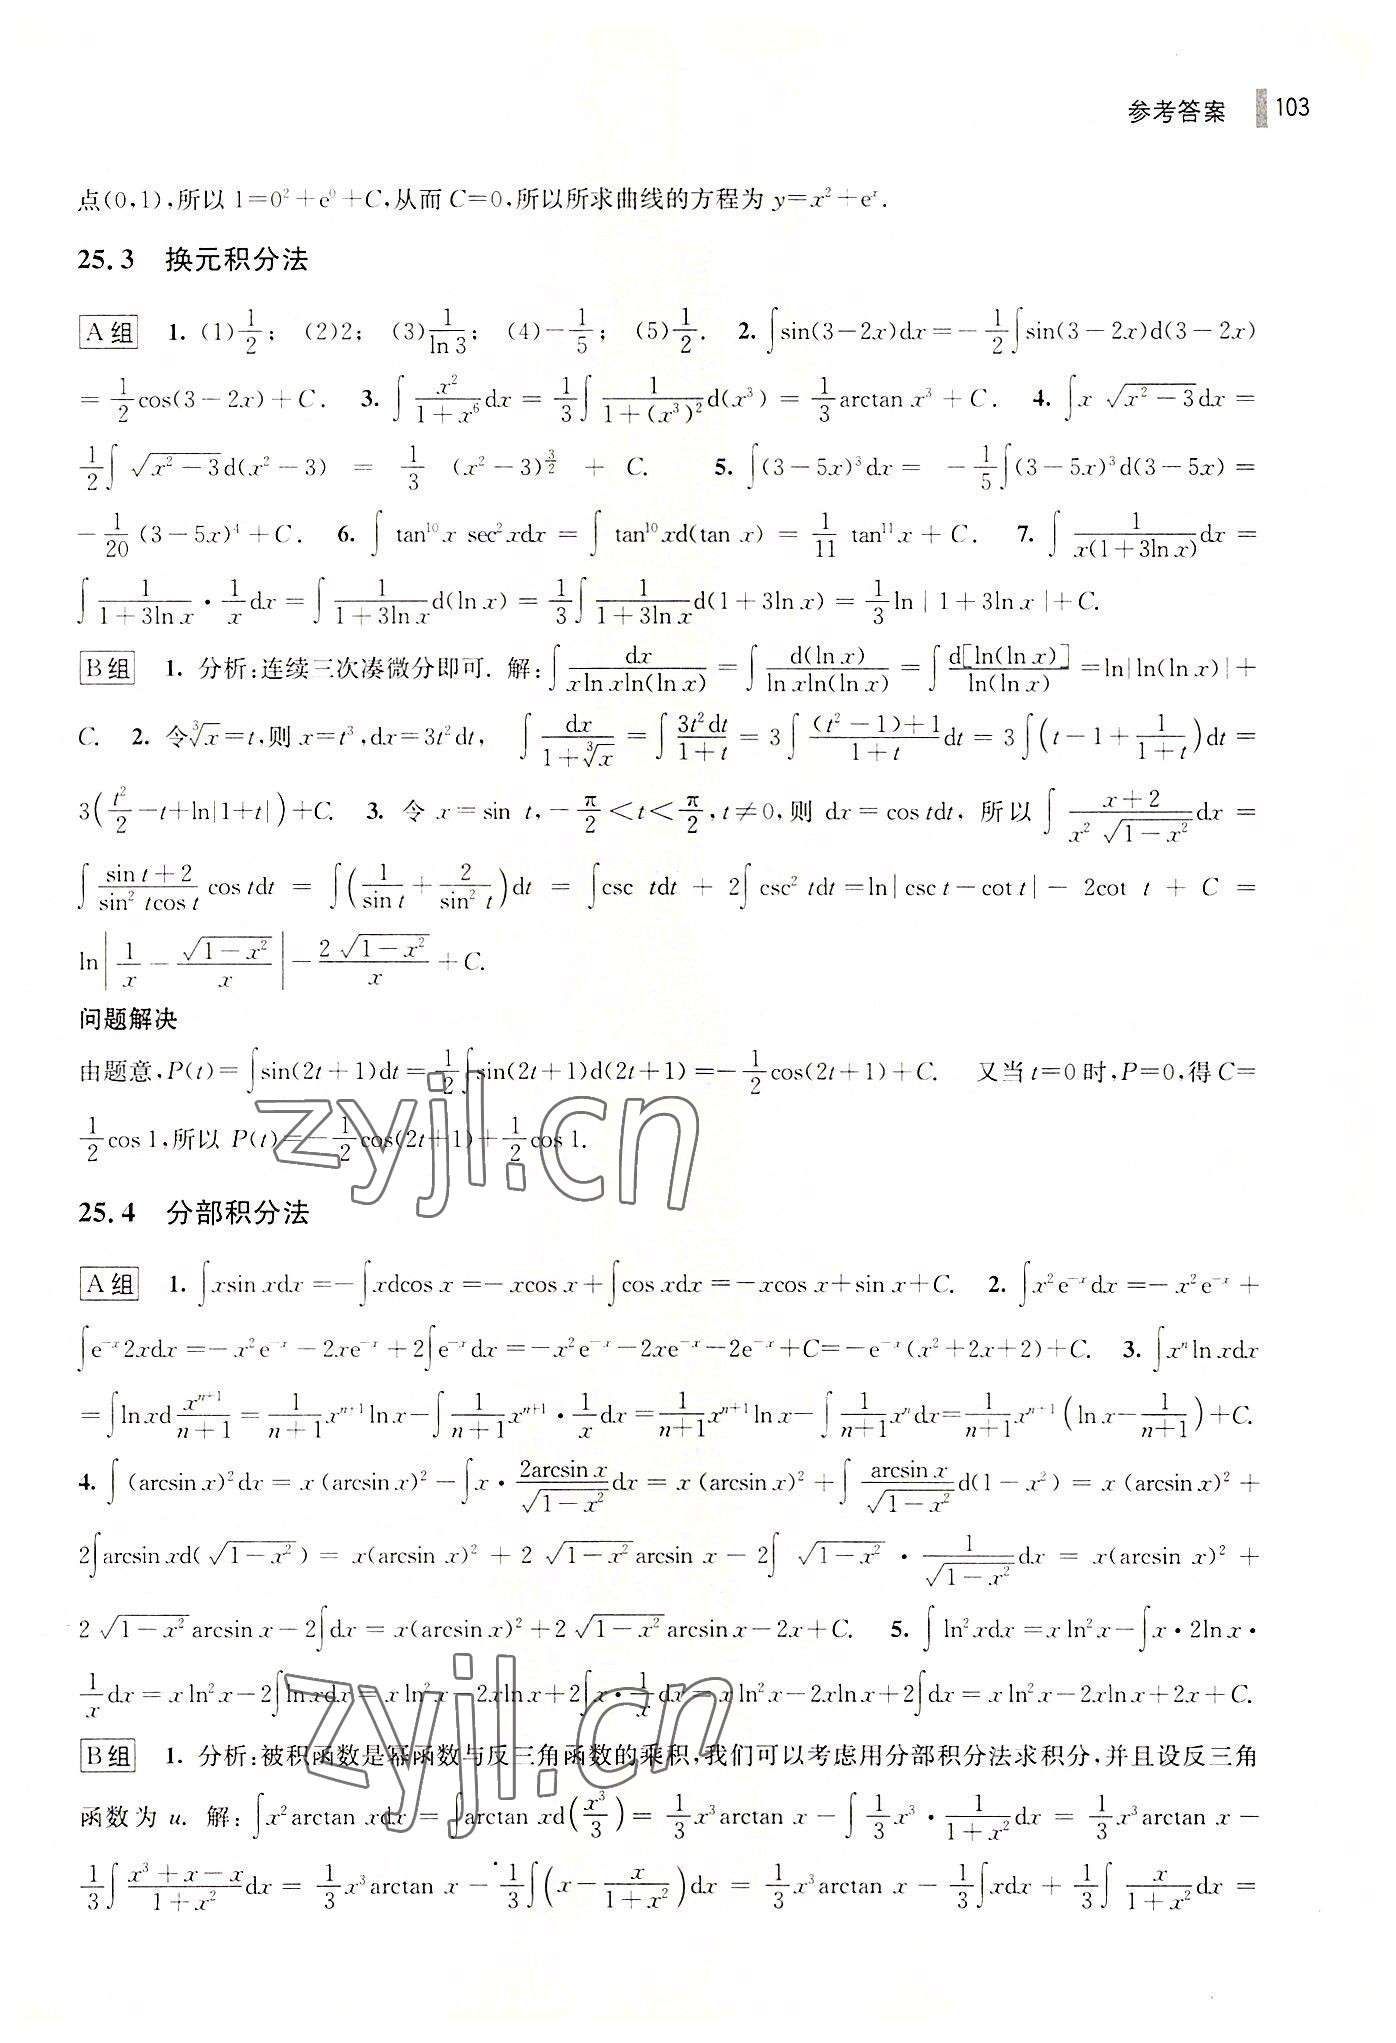 参考答案 103
点(0,1),所以 1=0²+e⁰+C,从而 C=0,所以所求曲线的方程为 y=x²+eˣ.
25.3 换元积分法
A组 1. (1)1/2; (2)2; (3)1/ln 3; (4)-1/5; (5)1/2. 2. ∫sin(3-2x)dx=-1/2∫sin(3-2x)d(3-2x)
=1/2cos(3-2x)+C. 3. ∫x²/(1+x⁶)dx=1/3∫1/(1+(x³)²)d(x³)=1/3arctan x³+C. 4. ∫x√(x²-3)dx=
1/2∫√(x²-3)d(x²-3)=1/3(x²-3)^(3/2)+C. 5. ∫(3-5x)³dx=-1/5∫(3-5x)³d(3-5x)=
-1/20(3-5x)⁴+C. 6. ∫tan¹⁰x sec²xdx=∫tan¹⁰xd(tan x)=1/11 tan¹¹x+C. 7. ∫1/(x(1+3ln x))dx=
∫1/(1+3ln x)·1/x dx=∫1/(1+3ln x)d(ln x)=1/3∫1/(1+3ln x)d(1+3ln x)=1/3ln|1+3ln x|+C.
B组 1. 分析:连续三次凑微分即可. 解:∫dx/(xln xln(ln x))=∫d(ln x)/(ln xln(ln x))=∫d[ln(ln x)]/ln(ln x)=ln|ln(ln x)|+
C. 2. 令∛x=t,则 x=t³,dx=3t²dt, ∫dx/(1+∛x)=∫3t²dt/(1+t)=3∫((t²-1)+1)/(1+t)dt=3∫(t-1+1/(1+t))dt=
3(t²/2-t+ln|1+t|)+C. 3. 令 x=sin t,-π/2<t<π/2,t≠0,则 dx=cos tdt, 所以∫(x+2)/(x²√(1-x²))dx=
∫(sin t+2)/(sin² tcos t)cos tdt=∫(1/sin t+2/sin² t)dt=∫csc tdt+2∫csc² tdt=ln|csc t-cot t|-2cot t+C=
ln|1/x-√(1-x²)/x|-2√(1-x²)/x+C.
问题解决
由题意,P(t)=∫sin(2t+1)dt=1/2∫sin(2t+1)d(2t+1)=-1/2cos(2t+1)+C. 又当 t=0 时,P=0,得 C=
1/2cos 1,所以 P(t)=-1/2cos(2t+1)+1/2cos 1.
zyjl.cn
25.4 分部积分法
A组 1. ∫xsin xdx=-∫xdcos x=-xcos x+∫cos xdx=-xcos x+sin x+C. 2. ∫x²e⁻ˣdx=-x²e⁻ˣ+
∫e⁻ˣ2xdx=-x²e⁻ˣ-2xe⁻ˣ+2∫e⁻ˣdx=-x²e⁻ˣ-2xe⁻ˣ-2e⁻ˣ+C=-e⁻ˣ(x²+2x+2)+C. 3. ∫xⁿln xdx
=∫ln xd xⁿ⁺¹/(n+1)=1/(n+1)xⁿ⁺¹ln x-∫1/(n+1)xⁿ⁺¹·1/x dx=1/(n+1)xⁿ⁺¹ln x-∫1/(n+1)xⁿdx=1/(n+1)xⁿ⁺¹(ln x-1/(n+1))+C.
4. ∫(arcsin x)²dx=x(arcsin x)²-∫x·2arcsin x/√(1-x²)dx=x(arcsin x)²+∫arcsin x/√(1-x²)d(1-x²)=x(arcsin x)²+
2∫arcsin xd(√(1-x²))=x(arcsin x)²+2√(1-x²)arcsin x-2∫√(1-x²)·1/√(1-x²)dx=x(arcsin x)²+
2√(1-x²)arcsin x-2∫dx=x(arcsin x)²+2√(1-x²)arcsin x-2x+C. 5. ∫ln²xdx=xln²x-∫x·2ln x·
1/x dx=xln²x-2∫ln xdx=xln²x-2xln x+2∫x·1/x dx=xln²x-2xln x+2∫dx=xln²x-2xln x+2x+C.
zyjl.cn
B组 1. 分析:被积函数是幂函数与反三角函数的乘积,我们可以考虑用分部积分法求积分,并且设反三角
函数为 u. 解:∫x²arctan xdx=∫arctan xd(x³/3)=1/3x³arctan x-∫1/3x³·1/(1+x²)dx=1/3x³arctan x-
1/3∫(x³+x-x)/(1+x²)dx=1/3x³arctan x-1/3∫(x-x/(1+x²))dx=1/3x³arctan x-1/3∫xdx+1/3∫x/(1+x²)dx=